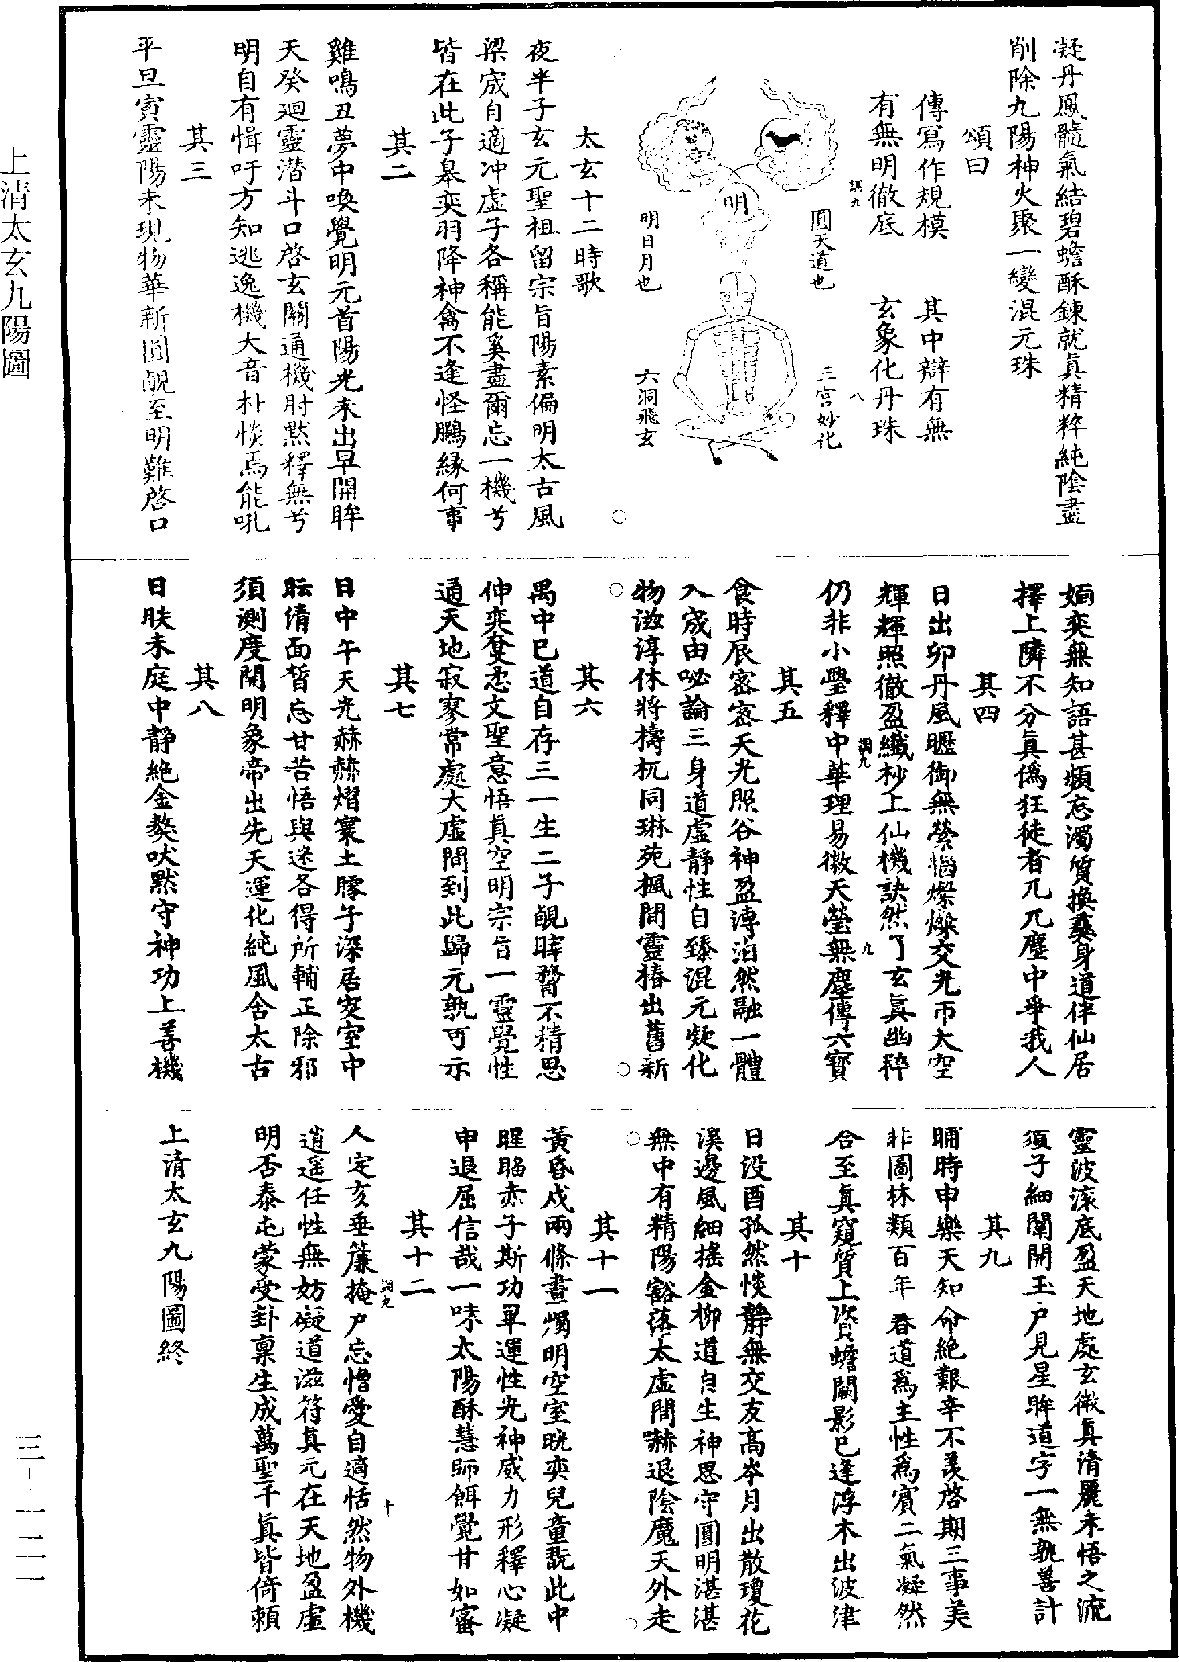 凝丹鳳髓氣結碧蟾酥鍊就真精粹純陰盡
削除九陽神火聚一變混元珠
頌曰
傳寫作規模 其中辯有無
有無明徹底 玄象化丹珠
圓天道也
三宮妙化
明
明日月也
六洞飛玄
太玄十二時歌
夜半子玄元聖祖留宗旨陽素偏明太古風
梁成自適冲虛子各稱能奚盡爾忘一機兮
皆在此子皋奕羽降神禽不逢怪鵬緣何事
其二
雞鳴丑夢中喚覺明元首陽光未出早開眸
天癸迴靈潛斗口啓玄關通機肘默釋無兮
明自有愔吁方知逃逸機大音朴惔焉能吼
其三
平旦寅靈陽未現物華新圓覩至明難啓口
姻奕無知語甚頻忘濁質換蕤身道伴仙居
擇上隣不分真僞狂徒者兀兀塵中爭我人
其四
日出卯丹風驅御無熒惱燦爍交光帀大空
輝輝照徹盈纖杪上仙機訣然了玄真幽粹
仍非小瑩釋中華理易徹天瑩無塵傳六寶
其五
食時辰密密天光照谷神盈溥泊然融一體
入成由咇論三身道虛靜性自臻混元凝化
物滋淳休將檮杌同琳苑楓間靈椿出舊新
其六
禺中巳道自存三一生二子覩眸瞀不精思
仲奕夐悉文聖意悟真空明宗旨一靈覺性
通天地寂寥常處大虛間到此歸元孰可示
其七
日中午天光赫赫熠寰土朦子深居突室中
眩倩面皙忘甘苦悟與迷各得所輔正除邪
須測度開明象帝出先天運化純風含太古
其八
日昳未庭中靜絶金獒吠默守神功上善機
靈波滾底盈天地處玄微真清麗未悟之流
須子細闡開玉戶見星眸道字一無孰善計
其九
晡時申樂天知命絶艱辛不羨啓期三事美
非圖林類百年春道爲主性爲賓二氣凝然
合至真窺質上資蟾闕影巳逢浮木出波津
其十
日没酉孤然惔靜無交友高岑月出散瓊花
溪邊風細搖金柳道自生神思守圓明湛湛
無中有精陽豁落太虛間赫退陰魔天外走
其十一
黃昏戌兩條晝燭明空室晄奕兒童翫此中
睲睸赤子斯功畢運性光神威力形釋心凝
申退屈信哉一味太陽酥慧師餌覺甘如蜜
其十二
人定亥垂簾掩戶忘憎愛自適恬然物外機
逍遥任性無妨礙道滋符真元在天地盈虛
明否泰屯蒙受卦稟生成萬聖千真皆倚賴
上清太玄九陽圖終
上清太玄九陽圖
三-一一二